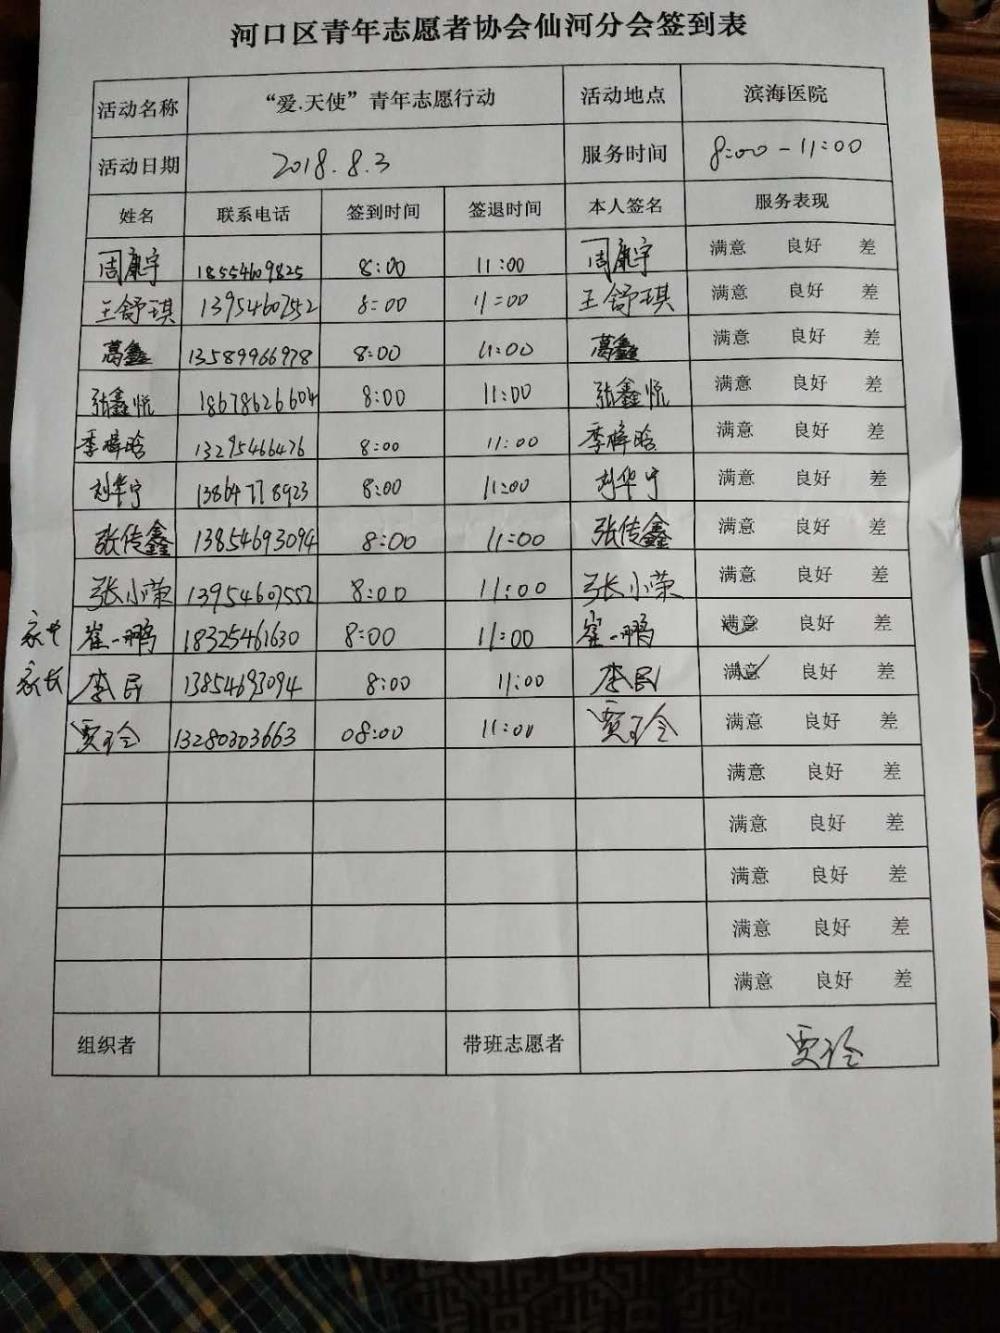 河口区青年志愿者协会仙河分会签到表
活动名称 “爱.天使”青年志愿行动 活动地点 滨海医院
活动日期 2018.8.3 服务时间 8:00-11:00
姓名 联系电话 签到时间 签退时间 本人签名 服务表现
周康宇 18554609825 8:00 11:00 周康宇 满意 良好 差
王舒琪 13954607552 8:00 11:00 王舒琪 满意 良好 差
葛鑫 13589966978 8:00 11:00 葛鑫 满意 良好 差
张鑫悦 18678626604 8:00 11:00 张鑫悦 满意 良好 差
季梓晗 13295466476 8:00 11:00 季梓晗 满意 良好 差
刘华宁 13864778923 8:00 11:00 刘华宁 满意 良好 差
张传鑫 13854693094 8:00 11:00 张传鑫 满意 良好 差
张小荣 13954607552 8:00 11:00 张小荣 满意 良好 差
家长 崔一鹏 18325461630 8:00 11:00 崔一鹏 满意 良好 差
家长 李民 13854693094 8:00 11:00 李民 满意 良好 差
贾玲 13280303663 08:00 11:00 贾玲 满意 良好 差
满意 良好 差
满意 良好 差
满意 良好 差
满意 良好 差
满意 良好 差
组织者 带班志愿者 贾玲